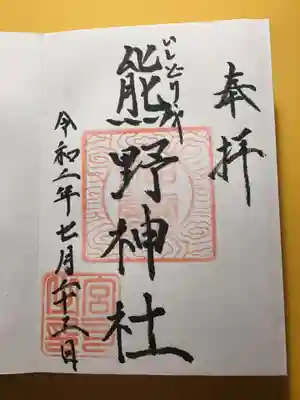 奉拝
いしどりや
熊野神社
令和二年七月廿三日